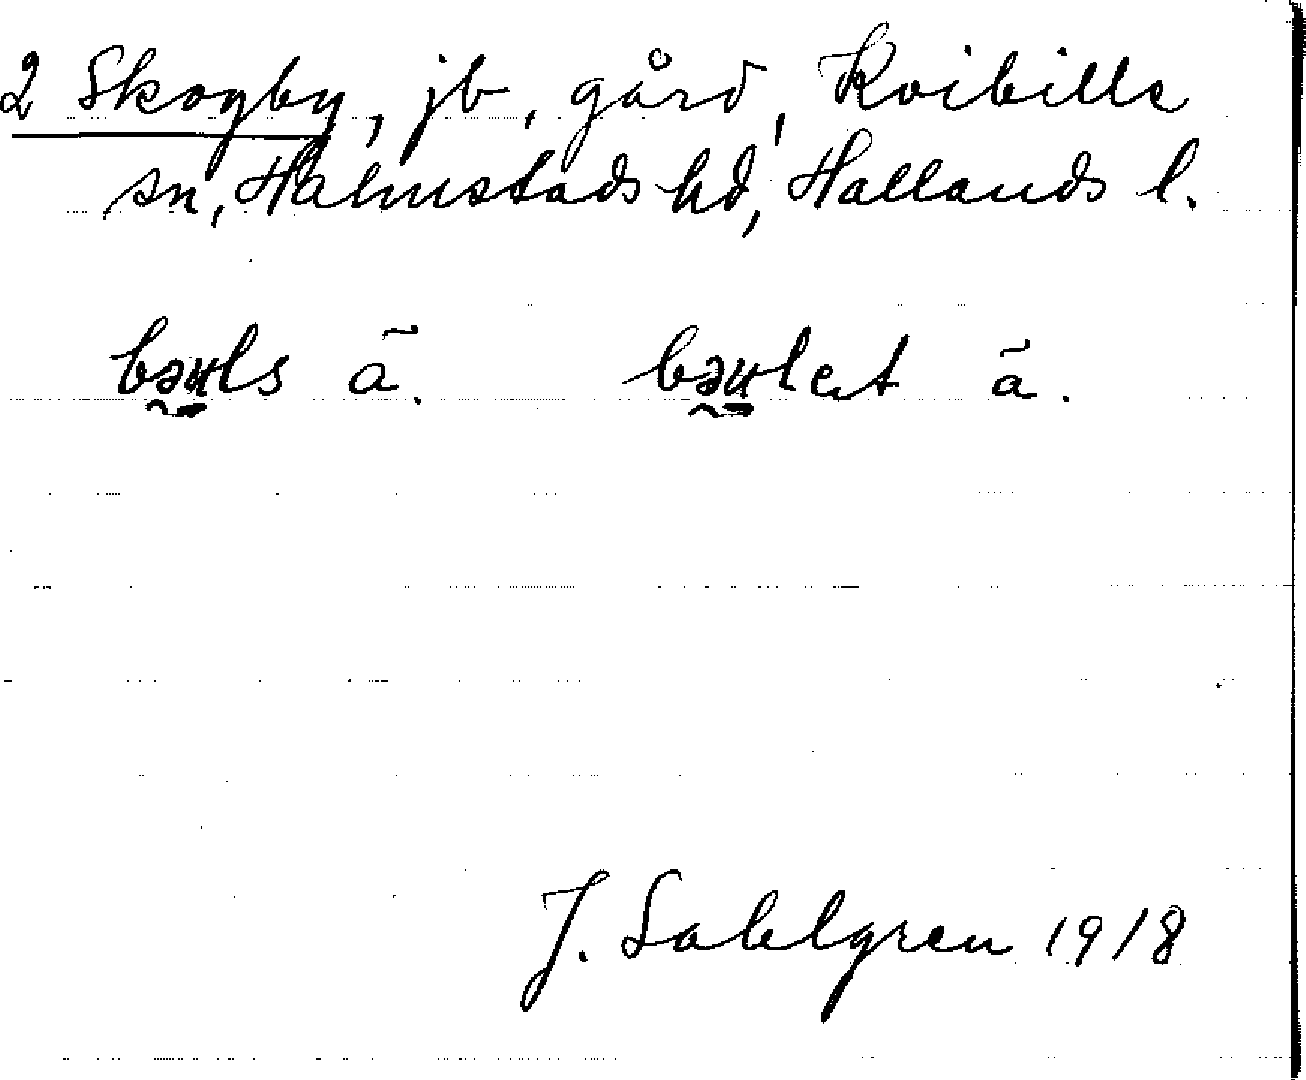 2 Skogby, jb, gård, Kvibille
sn, Halmstads hd, Hallands l.
bəu̠ls ã. bəu̠let ã.
J. Sahlgren 1918